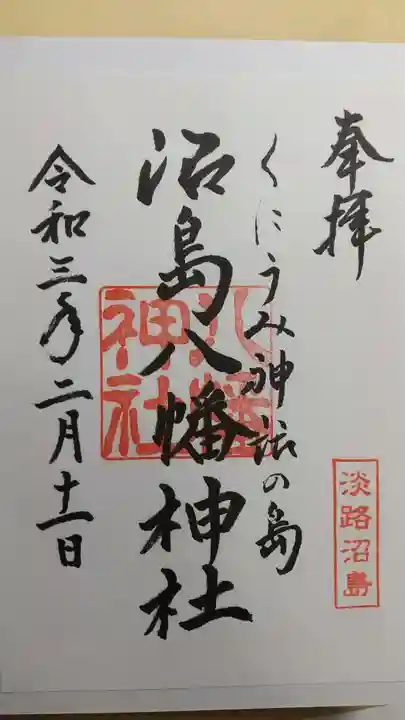 奉拝
淡路沼島
くにうみ神話の島
沼島八幡神社
八幡
神社
令和三年二月十一日